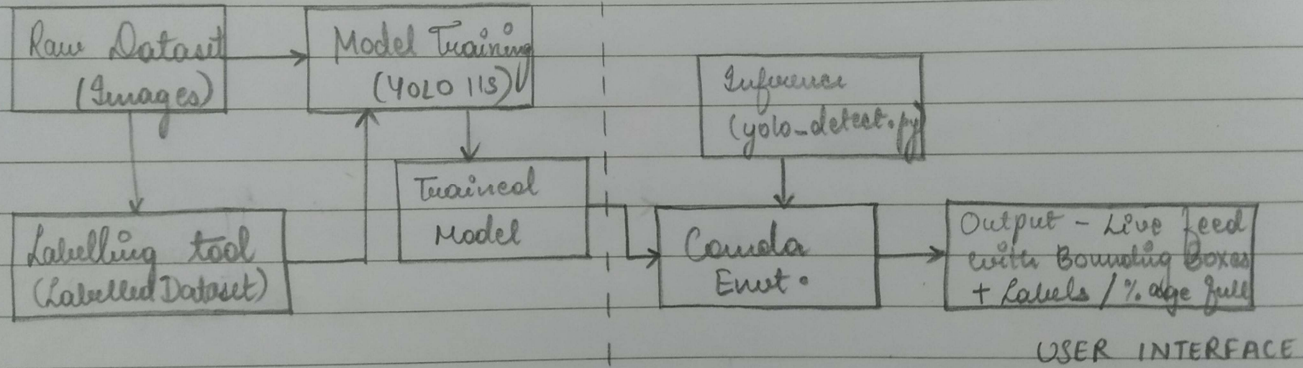 Raw Dataset
(Images)
Model Training
(YOLO 11S)
Inference
(yolo_detect.py)
Trained
Model
Labelling tool
(Labelled Dataset)
Conda
Envt.
Output - Live feed
with Bounding Boxes
+ Labels / % age full
USER INTERFACE